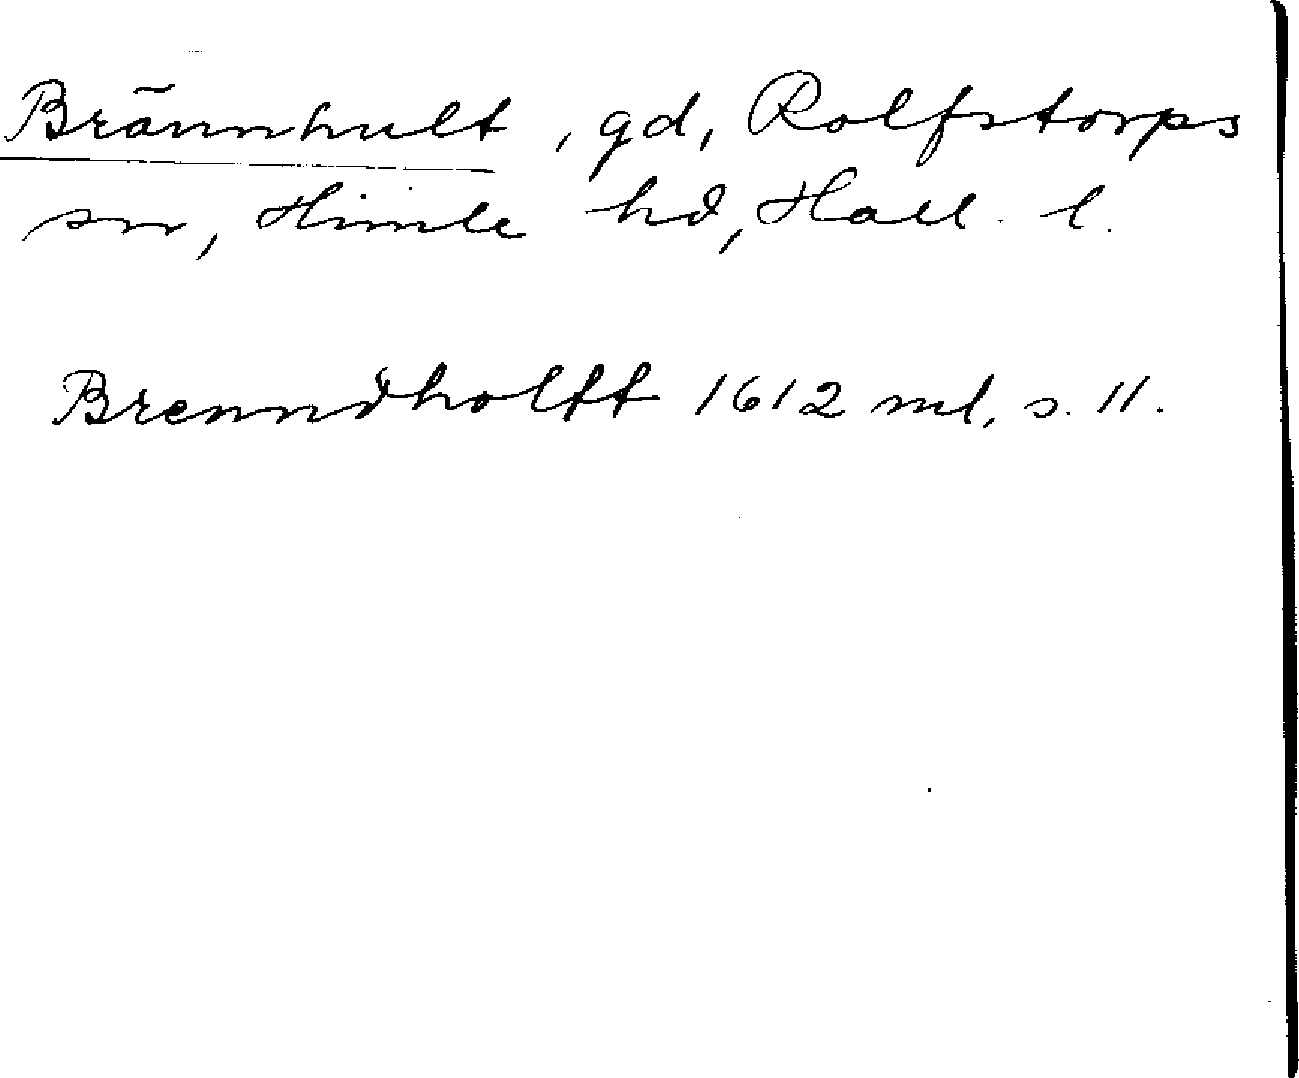 Brännhult, gd, Rolfstorps
sn, Himle hd, Hall. l.
Brenndholtt 1612 ml, s. 11.